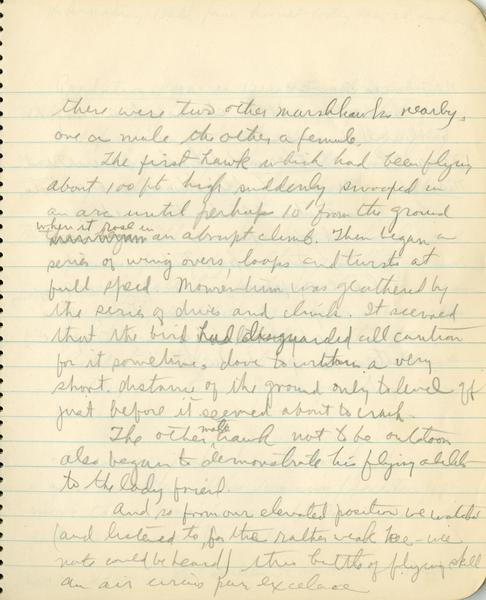 there were two other marshhawks nearby,
one a male the other a female.
The first hawk which had been flying
about 100 ft high suddenly swooped in
an arc until perhaps 10' from the ground
when it rose in
an abrupt climb. Then began a
series of wing overs, loops and twists at
full speed. Momentum was gathered by
the series of dives and climbs. It seemed
that the bird had disguarded all caution
for it sometimes dove to within a very
short distance of the ground only to level off
just before it seemed about to crash.
The other male hawk not to be outdone
also began to demonstrate his flying abilities
to the lady friend.
And so from our elevated position we watched
(and listened to, for the rather weak
note could be heard) this battle of flying skill
an air circus par excelance